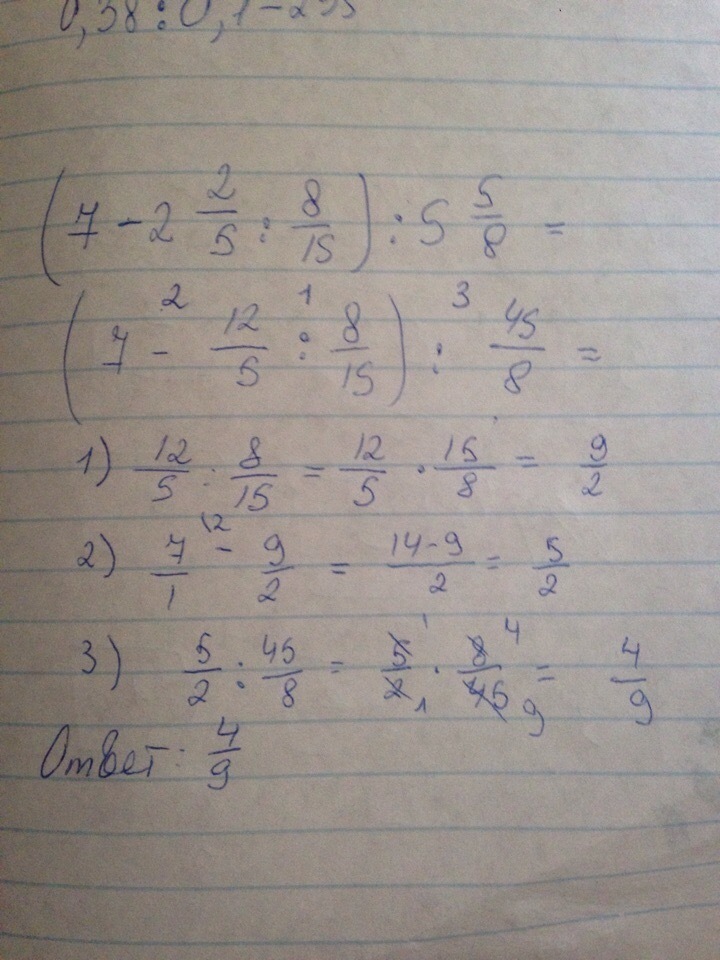 0,38:0,1-2
(7 - 2 2/5 : 8/15) : 5 5/8 =
(7 - 12/5 : 8/15) : 45/8 =
2 1 3
1) 12/5 : 8/15 = 12/5 · 15/8 = 9/2
2) 7/1 \2 - 9/2 = 14-9/2 = 5/2
3) 5/2 : 45/8 = 5/2 · 8/45 = 4/9
1 1 4 9
Ответ: 4/9